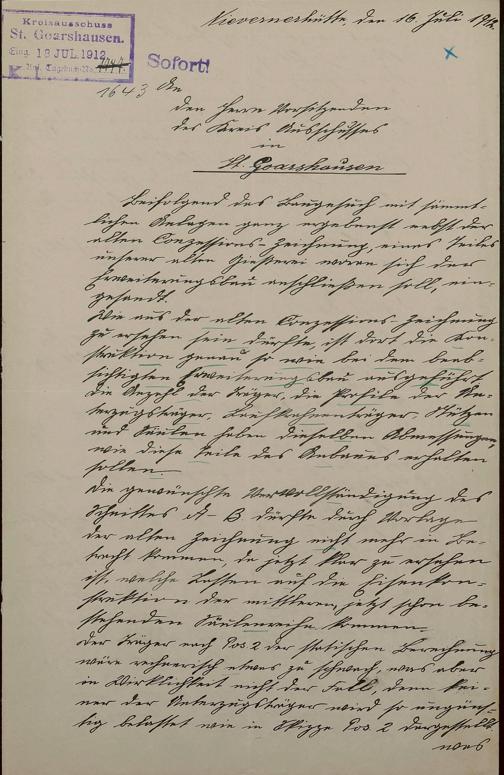 Nievernerhütte, den 16. Juli 1912.
Kreisausschuss
St. Goarshausen.
Eing. 18 JUL. 1912
Sofort!
1643
An
den Herrn Vorsitzenden
des Kreis Ausschusses
in
St. Goarshausen
Beifolgend das Baugesuch mit sämmt-
lichen Anlagen ganz ergebenst nebst der
alten Conzessions-Zeichnung, eines Teiles
unserer alten Gießerei woran sich der
Erweiterungsbau anschließen soll, ein-
gesandt.
Wie aus der alten Conzessions Zeichnung
zu ersehen sein dürfte, ist dort die Kon-
struktion genau so wie bei dem beab-
sichtigten Erweiterungsbau ausgeführt
die Anzahl der Träger, die Profile der Un-
terzugsträger, Stützen
und Säulen haben dieselben Abmessungen,
wie diese Teile des Anbaues erhalten
sollen.
Die gewünschte Vervollständigung des
Schnittes A-B dürfte durch Vorlage
der alten Zeichnung nicht mehr in Be-
tracht kommen, da jetzt klar zu ersehen
ist, welche Lasten auf die Eisenkon-
struktion der mittleren, jetzt schon be-
stehenden Säulenreihe kommen.
Der Träger nach Pos 2 der statischen Berechnung
wäre rechnerisch etwas zu schwach, was aber
in Wirklichkeit nicht der Fall, denn kei-
ner der Unterzugsträger wird so ungüns-
tig belastet wie in Skizze Pos. 2 dargestellt.
was